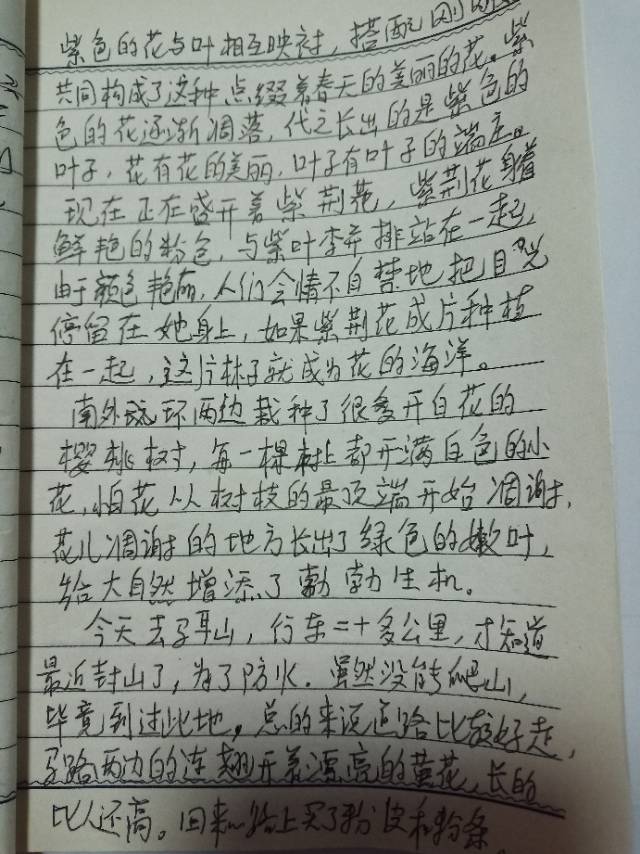 紫色的花与叶相互映衬，搭配刚刚
共同构成了这种点缀着春天的美丽的花。紫
色的花逐渐凋落，代之长出的是紫色的
叶子，花有花的美丽，叶子有叶子的端庄。
现在正在盛开着紫荆花，紫荆花身着
鲜艳的粉色，与紫叶李并排站在一起，
由于颜色艳丽，人们会情不自禁地把目光
停留在她身上，如果紫荆花成片种植
在一起，这片林子就成为花的海洋。
南外环两边栽种了很多开白花的
樱桃树，每一棵树上都开满白色的小
花，小白花从树枝的最顶端开始凋谢，
花儿凋谢的地方长出了绿色的嫩叶，
给大自然增添了勃勃生机。
今天去了耳山，行车二十多公里，才知道
最近封山了，为了防火．虽然没能爬山，
毕竟到过此地，总的来说道路比较好走，
马路两边的连翘开着漂亮的黄花，长的
比人还高。回来路上买了粉皮和粉条